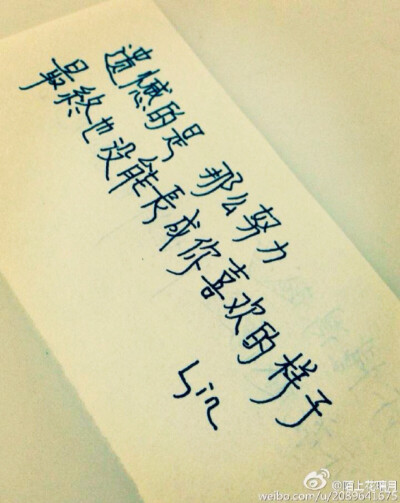 遗憾的是 那么努力
最終也没能長成你喜欢的样子
sin
@陌上花琪見
weibo.com/u/2089641675